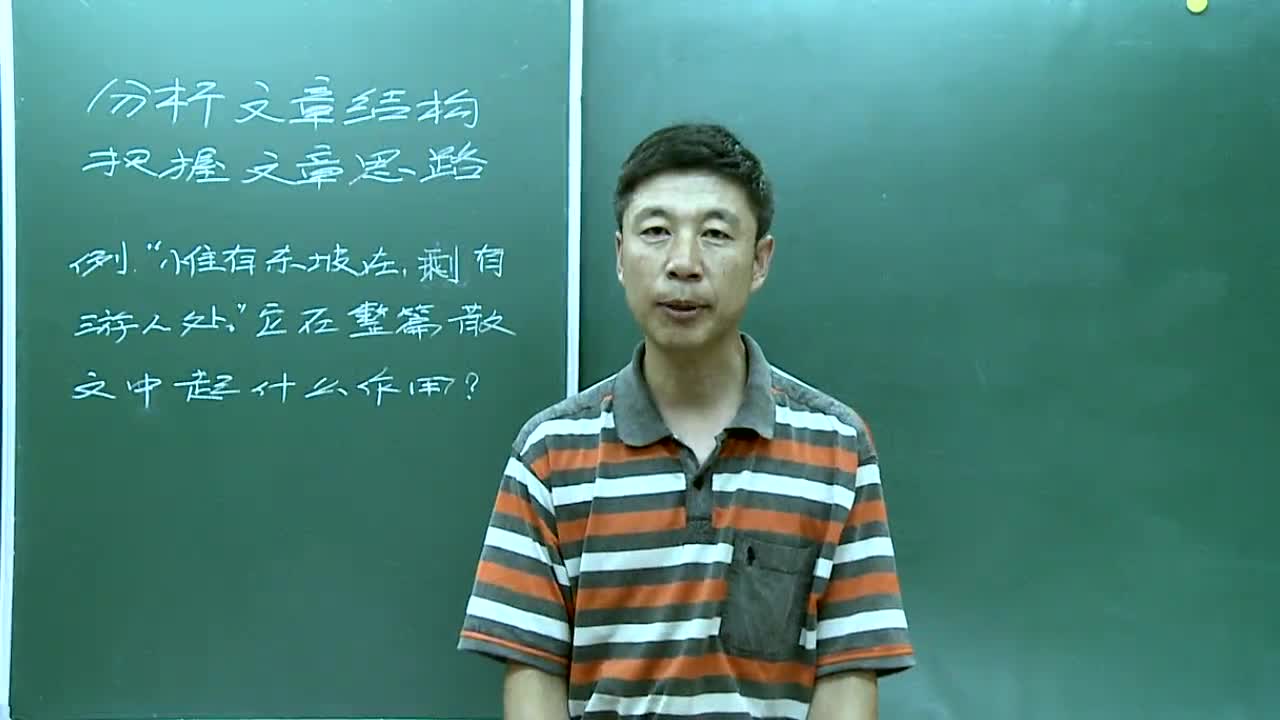 分析文章结构
把握文章思路
例.“惟有东坡在,剩有
游人处。”它在整篇散
文中起什么作用?